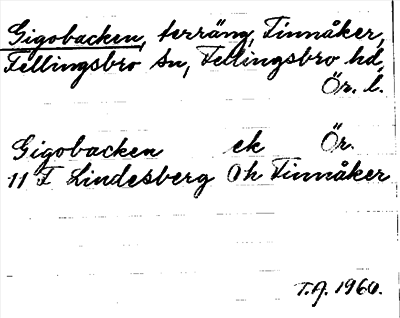 Gigobacken, terräng, Finnåker,
Fellingsbro sn, Fellingsbro hd,
Ör. l.
Gigobacken ek Ör.
11 F Lindesberg Oh Finnåker
T.A. 1960.